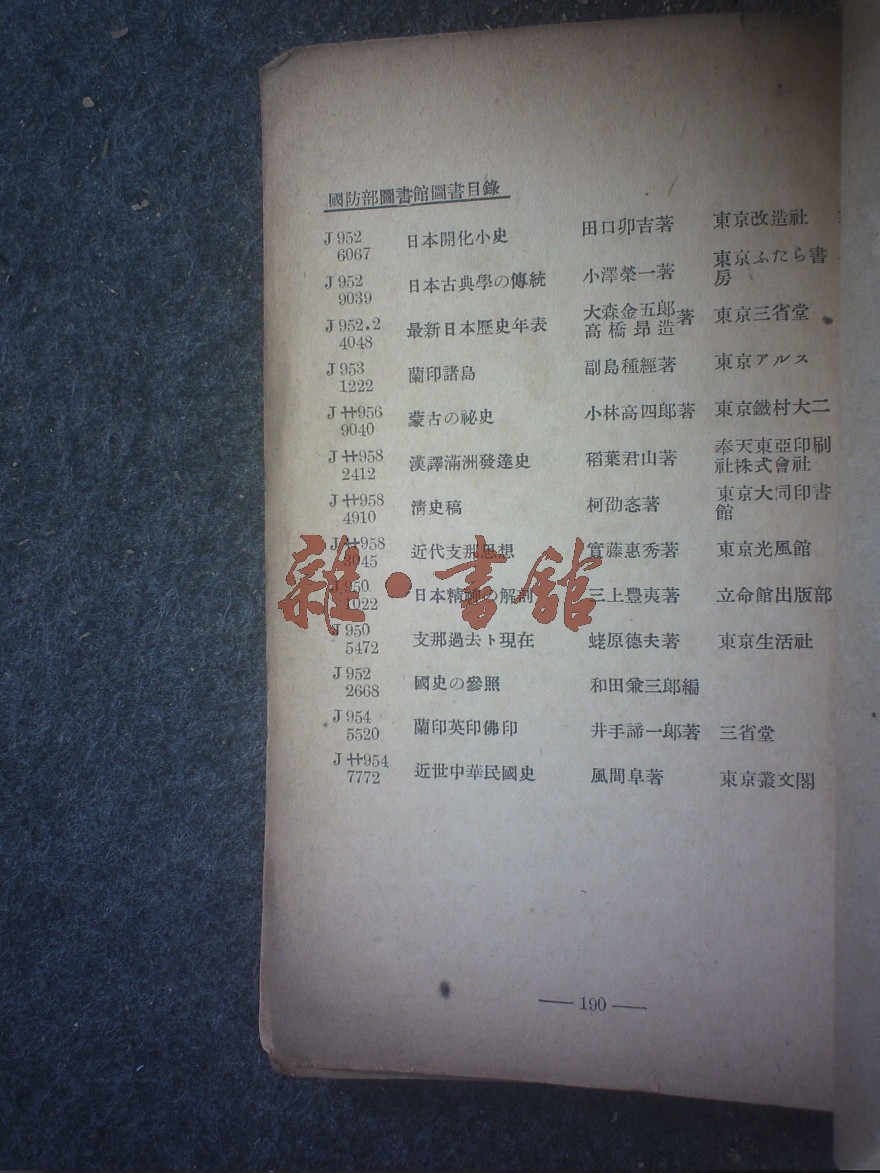 國防部圖書館圖書目錄
J 952 日本開化小史 田口卯吉著 東京改造社
6067
J 952 日本古典學の傳統 小澤榮一著 東京ふたら書
9039 房
J 952.2 最新日本歷史年表 大森金五郎 高橋昂造 著 東京三省堂
4048
J 953 蘭印諸島 副島種經著 東京アルス
1222
J 卄956 蒙古の祕史 小林高四郎著 東京鐵村大二
9040
J 卄958 漢譯滿洲發達史 稻葉君山著 奉天東亞印刷
2412 社株式會社
J 卄958 淸史稿 柯劭忞著 東京大同印書
4910 館
J 卄958 近代支那思想 實藤惠秀著 東京光風館
3045
J 950 日本精神の解剖 三上豐夷著 立命館出版部
1022
J 950 支那過去ト現在 蛯原德夫著 東京生活社
5472
J 952 國史の參照 和田兼三郎編
2668
J 954 蘭印英印佛印 井手諦一郎著 三省堂
5520
J 卄954 近世中華民國史 風間阜著 東京叢文閣
7772
— 190 —
雜·書館